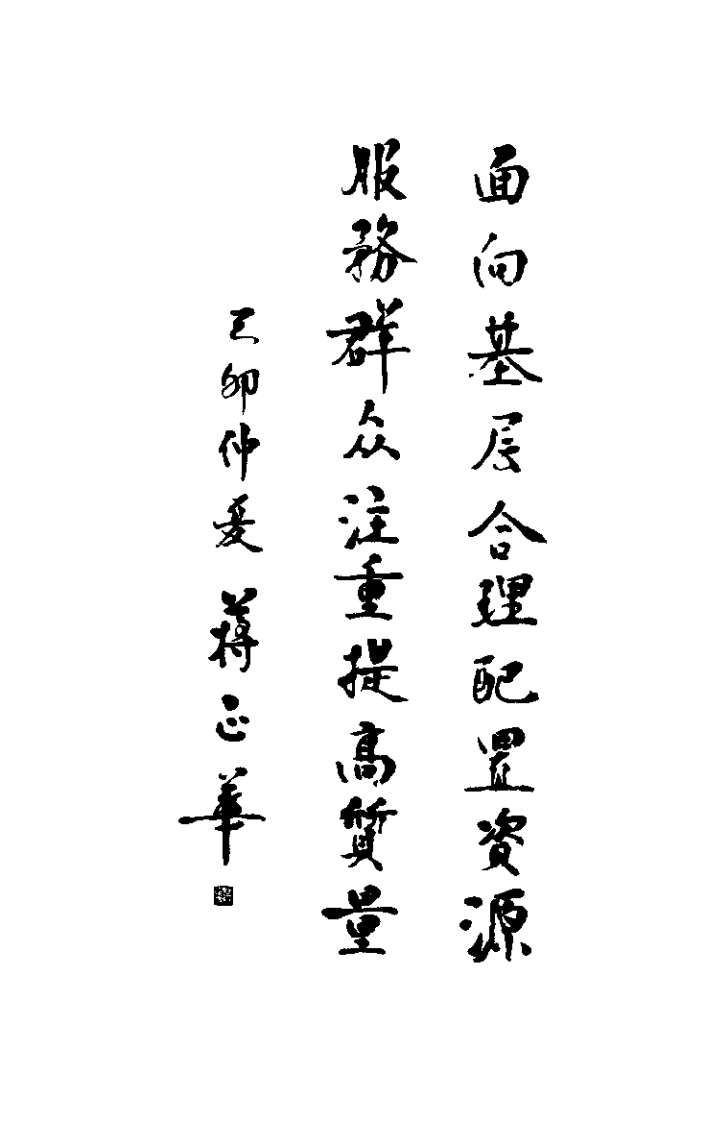 面向基层合理配置資源
服務群众注重提高質量
己卯仲夏 蔣正華